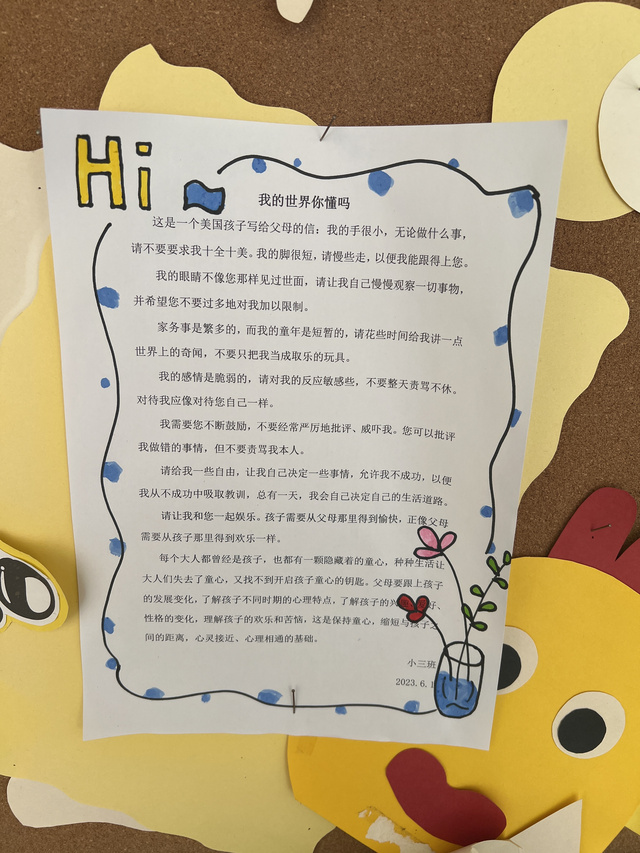 Hi
我的世界你懂吗
这是一个美国孩子写给父母的信：我的手很小，无论做什么事，
请不要要求我十全十美。我的脚很短，请慢些走，以便我能跟得上您。
我的眼睛不像您那样见过世面，请让我自己慢慢观察一切事物，
并希望您不要过多地对我加以限制。
家务事是繁多的，而我的童年是短暂的，请花些时间给我讲一点
世界上的奇闻，不要只把我当成取乐的玩具。
我的感情是脆弱的，请对我的反应敏感些，不要整天责骂不休。
对待我应像对待您自己一样。
我需要您不断鼓励，不要经常严厉地批评、威吓我。您可以批评
我做错的事情，但不要责骂我本人。
请给我一些自由，让我自己决定一些事情，允许我不成功，以便
我从不成功中吸取教训，总有一天，我会自己决定自己的生活道路。
请让我和您一起娱乐。孩子需要从父母那里得到愉快，正像父母
需要从孩子那里得到欢乐一样。
每个大人都曾经是孩子，也都有一颗隐藏着的童心，种种生活让
大人们失去了童心，又找不到开启孩子童心的钥匙。父母要跟上孩子
的发展变化，了解孩子不同时期的心理特点，了解孩子的兴 好、
性格的变化，理解孩子的欢乐和苦恼，这是保持童心，缩短与孩子之
间的距离，心灵接近、心理相通的基础。
小三班
2023.6.1